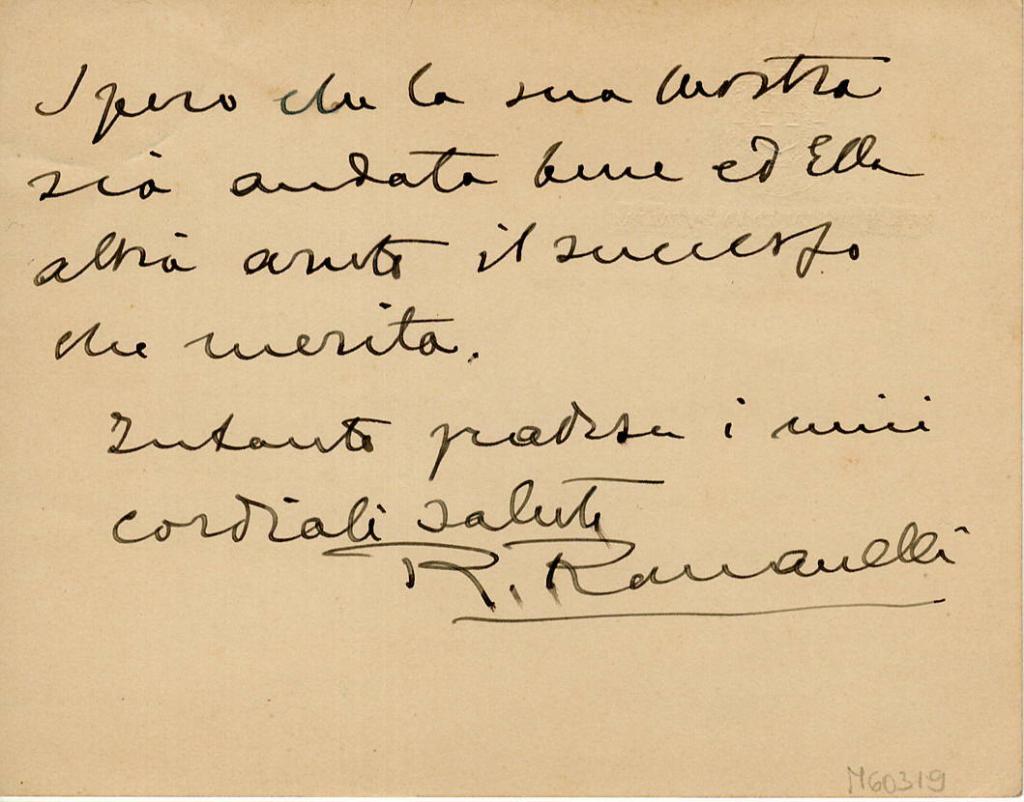 Spero che la sua mostra
sia andata bene ed Ella
abbia avuto il successo
che merita.
Intanto gradisca i miei
cordiali saluti
R. Romanelli
M60319